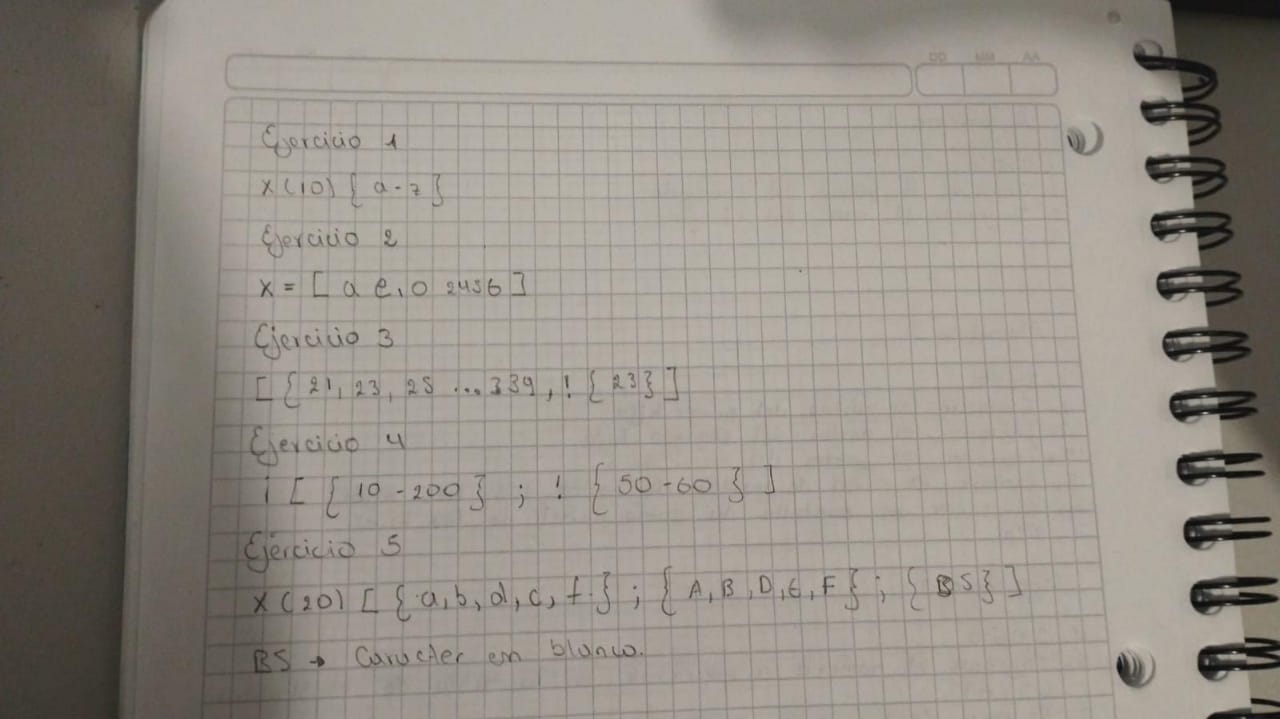 DD MM AA
Ejercicio 1
X(10) { a-z }
Ejercicio 2
X = [ a e, o 2456 ]
Ejercicio 3
[ { 21, 23, 25 ... 339, ! { 23} ]
Ejercicio 4
i [ { 10 - 200 } ; ! { 50 - 60 } ]
Ejercicio 5
X (20) [ { a, b, d, c, f } ; { A, B, D, E, F } ; { BS } ]
BS → Caracter em blanco.